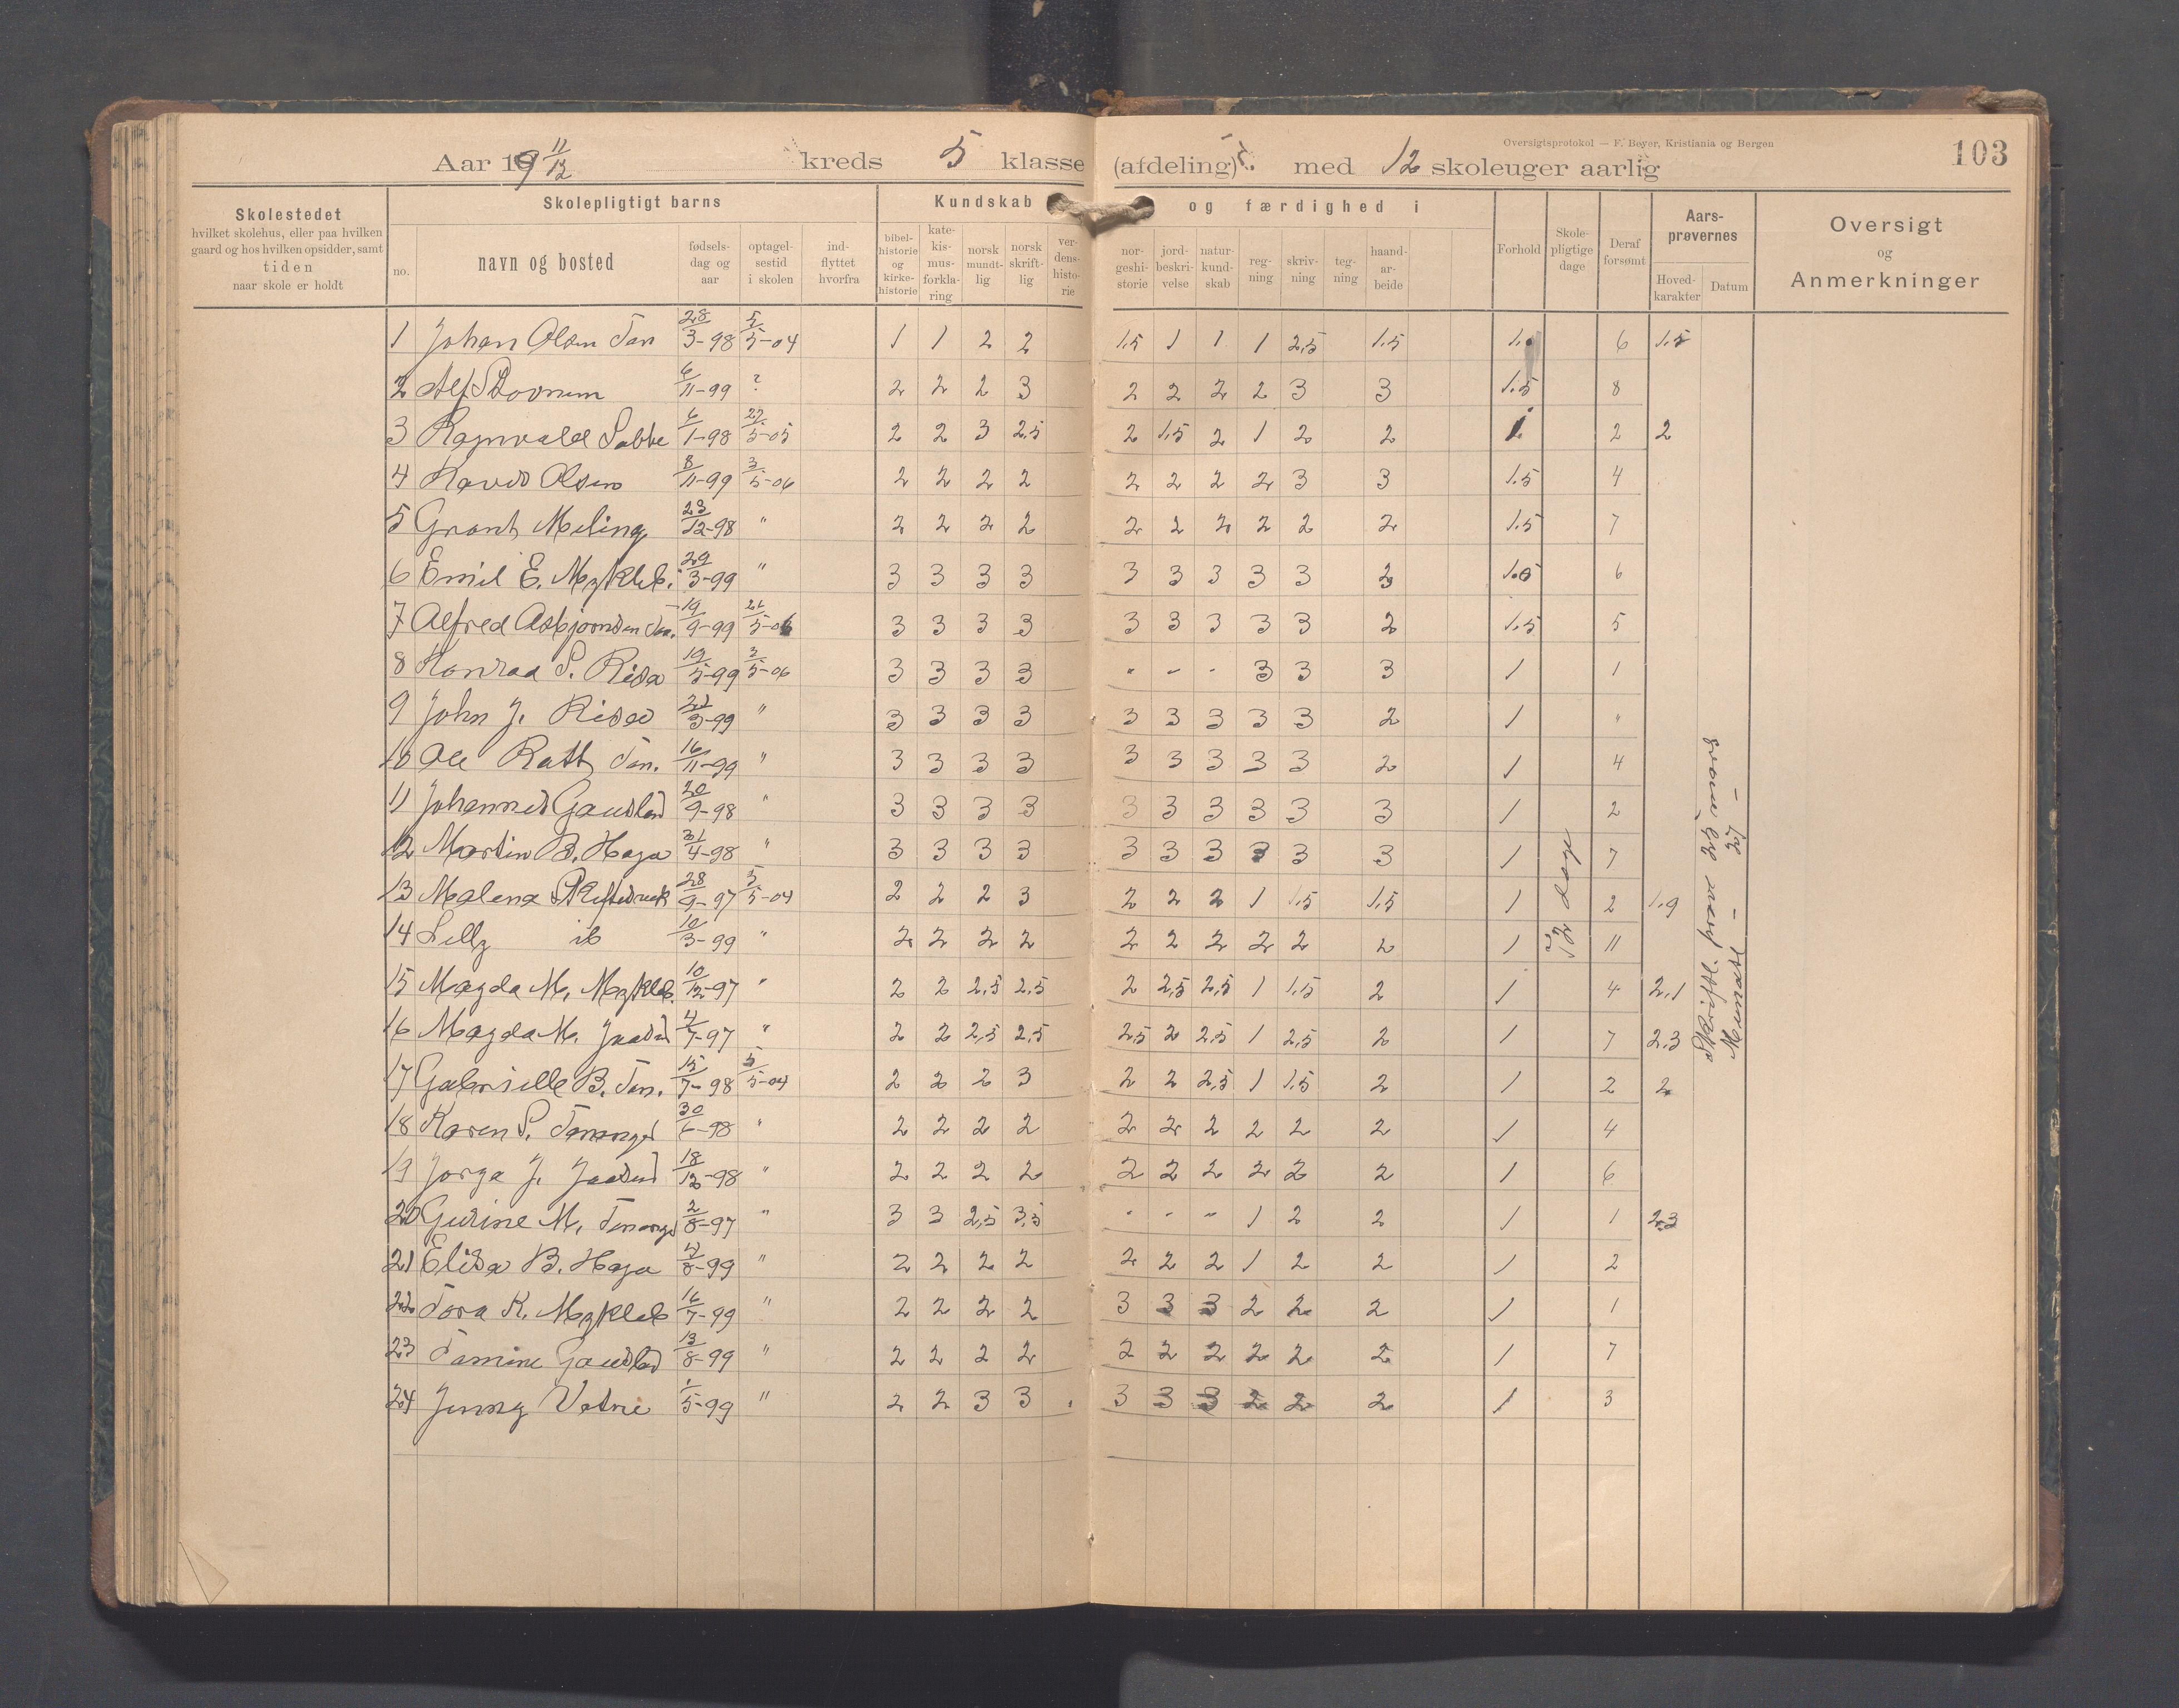 Oversigtsprotokol — F. Beyer, Kristiania og Bergen
103
Aar 19 11/12 kreds 5 klasse (afdeling) med 12 skoleuger aarlig
Skolestedet
hvilket skolehus, eller paa hvilken
gaard og hos hvilken opsidder, samt
tiden
naar skole er holdt
Skolepligtigt barns
no.
navn og bosted
fødsels-
dag og
aar
optagel-
sestid
i skolen
ind-
flyttet
hvorfra
Kundskab og færdighed i
bibel-
historie
og
kirke-
historie
kate-
kis-
mus-
forkla-
ring
norsk
mundt-
lig
norsk
skrift-
lig
ver-
dens-
histo-
rie
nor-
geshi-
storie
jord-
beskri-
velse
natur-
kund-
skab
reg-
ning
skriv-
ning
teg-
ning
haand-
ar-
beide
Forhold
Skole-
pligtige
dage
Deraf
forsømt
Aars-
prøvernes
Hoved-
karakter
Datum
Oversigt
og
Anmerkninger
1 Johan Olsen Tan 28/3-98 5/5-04 1 1 2 2 1.5 1 1 1 2,5 1.5 6 1.5
2 Alf 6/11-99 ? 2 2 2 3 2 2 2 2 3 3 1.5 8
3 Ragnvald 6/1-98 5-05 2 2 3 2,5 2 1.5 2 1 2 2 2 2
4 Olsen 8/11-99 3/5-06 2 2 2 2 2 2 2 2 3 3 1.5 4
5 Grant Meling 23/12-98 " 2 2 2 2 2 2 2 2 2 2 1.5 7
6 Emil E. Mykleb. 29/3-99 " 3 3 3 3 3 3 3 3 3 2 6
7 Alfred Asbjørnsen Tan. 19/9-99 5-06 3 3 3 3 3 3 3 3 3 2 1.5 5
8 Konrad S. Risa 19/5-99 3/5-06 3 3 3 3 " - - 3 3 3 1 1
9 John J. Risa 3-99 " 3 3 3 3 3 3 3 3 3 2 1 "
10 Ole Ratt Tan. 16/11-99 " 3 3 3 3 3 3 3 3 3 2 1 4
11 Johannes Gausland 20/9-98 " 3 3 3 3 3 3 3 3 3 3 1 2
12 Martin B. Haga 31/4-98 " 3 3 3 3 3 3 3 3 3 3 1 7
13 Malena 28/9-97 5/5-04 2 2 2 3 2 2 2 1 1.5 1.5 1 2 1.9
14 Lilly ib 10/3-99 " 2 2 2 2 2 2 2 2 2 2 1 11
15 Magda M. Mykleb. 10/12-97 " 2 2 2,5 2,5 2 2,5 2,5 1 1.5 2 1 4 2,1
16 Magda M. 4/7-97 " 2 2 2,5 2,5 2,5 2 2,5 1 2,5 2 1 7 2.3
17 Gabrielle B. Tan. 15/7-98 5/5-04 2 2 2 3 2 2 2,5 1 1.5 2 1 2 2
18 Karen S. Tananger 30/6-98 " 2 2 2 2 2 2 2 2 2 2 1 4
19 J. 18/12-98 " 2 2 2 2 2 2 2 2 2 2 1 6
20 Gurine M. Tananger 2/8-97 " 3 3 2,5 3,5 " - - 1 2 2 1 1 2.3
21 Elisa B. Haga 4/8-99 " 2 2 2 2 2 2 2 1 2 2 1 2
22 Tora K. Mykleb 16/7-99 " 2 2 2 2 3 3 3 2 2 2 1 1
23 Tamine Gausland 13/8-99 " 2 2 2 2 2 2 2 2 2 2 1 7
24 Jenny 1/5-99 " 2 2 3 3 3 3 3 2 2 2 1 3
dage